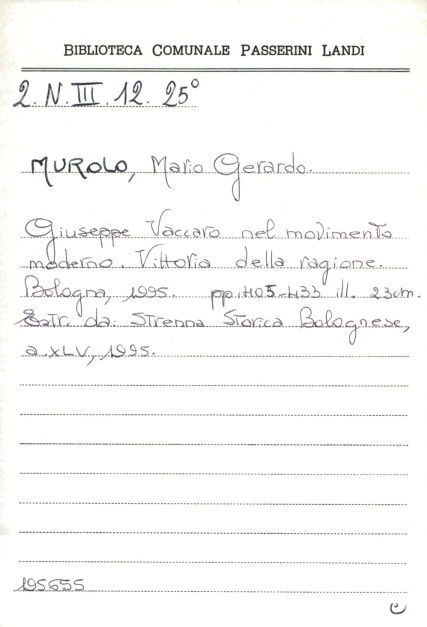 BIBLIOTECA COMUNALE PASSERINI LANDI
2. N. III. 12. 25°
MUROLO, Mario Gerardo.
Giuseppe Vaccaro nel movimento
moderno. Vittoria della ragione.
Bologna, 1995. pp. 405-433 ill. 23cm.
Estr. da: Strenna Storica Bolognese,
a. XLV, 1995.
195655